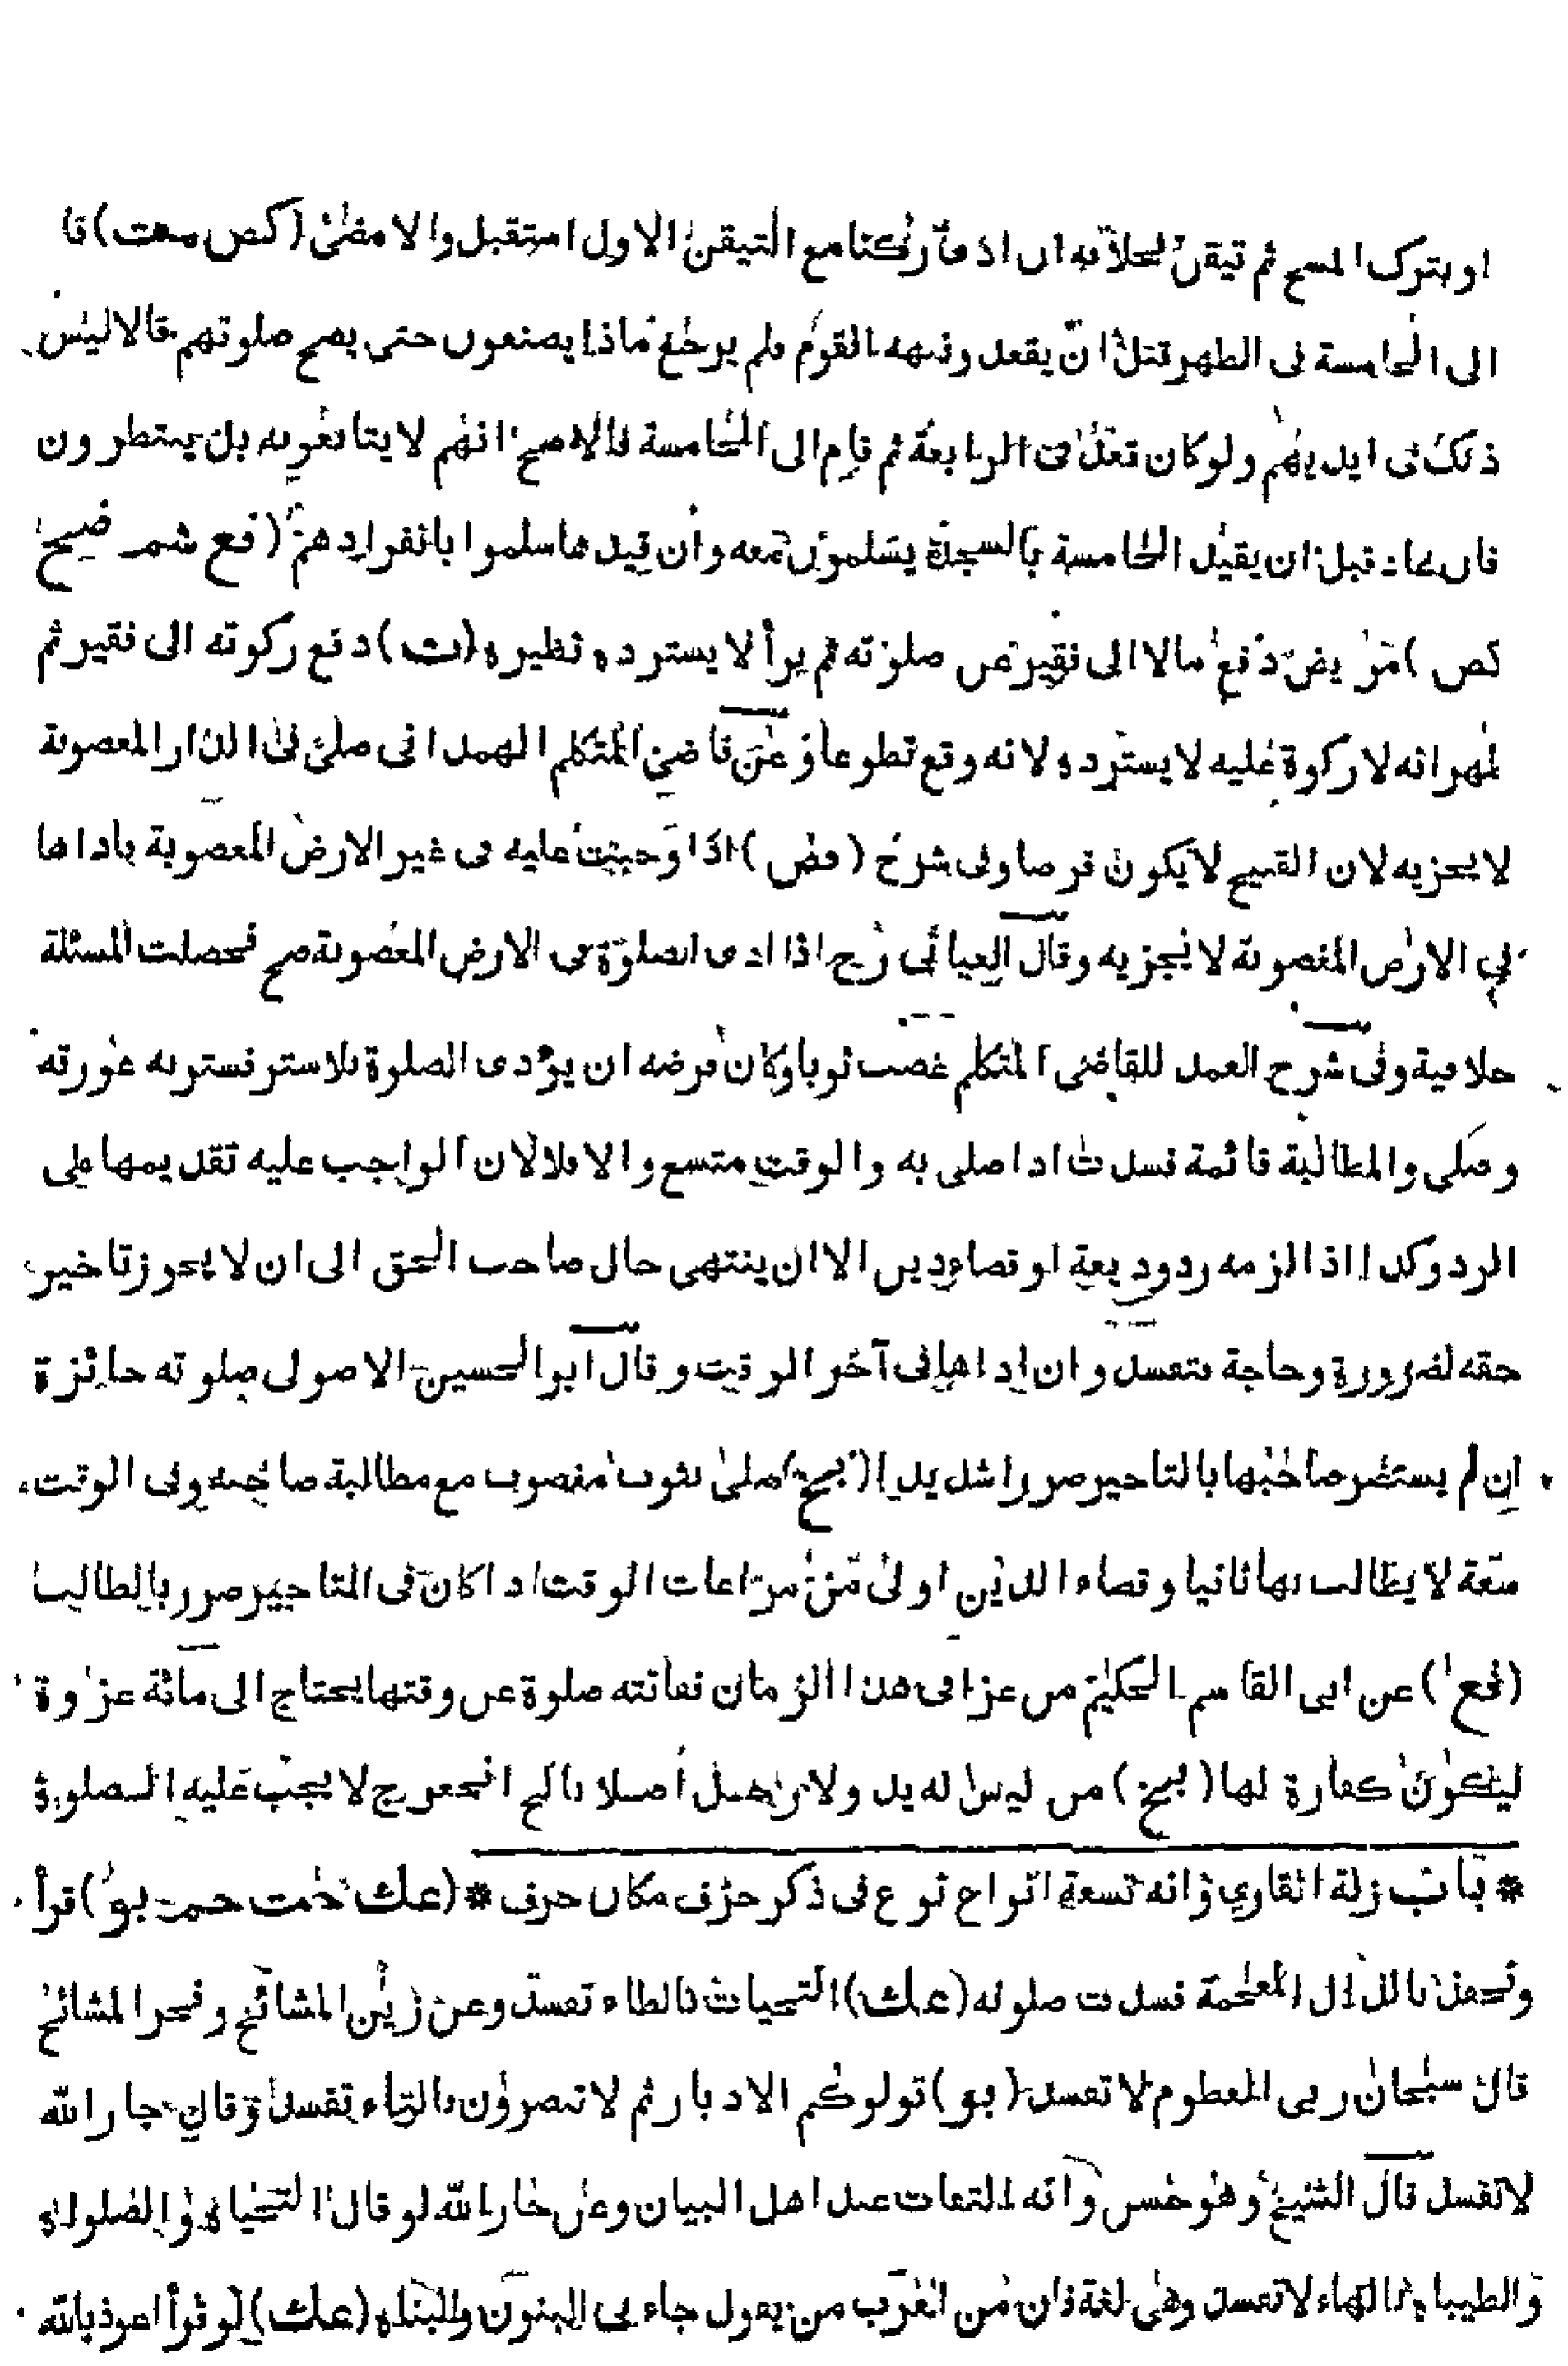 او بترك المسح ثم تيقن بخلافه ان ادى ركنا مع التيقن الاول استقبل والا مضى (كص مت) قا
الى الخامسة فى الظهر قبل ان يقعد ونبهه القوم فلم يرجع ماذا يصنعون حتى يصح صلوتهم قالا ليس
ذلك فى ايديهم ولو كان قعد فى الرابعة ثم قام الى الخامسة فالاصح انهم لا يتابعونه بل ينتظرون
فان عاد قبل ان يقيد الخامسة بالسجدة يسلمون معه وان قيدها سلموا بانفرادهم (فع شم صح
كص) مريض دفع مالا الى فقير عن صلوته ثم برأ لا يسترده ونظيره (ت) دفع زكوته الى فقير ثم
ظهر انه لا زكوة عليه لا يسترده لانه وقع تطوعا وعن قاضى المتكلم الهمدانى صلى فى الدار المغصوبة
لا يجزيه لان القبيح لا يكون فرضا وفى شرح (فض) اذا وجبت عليه فى غير الارض المغصوبة فاداها
فى الارض المغصوبة لا يجزيه وقال العياني رح اذا ادى الصلوة فى الارض المغصوبة صح فحصلت المسئلة
خلافية وفى شرح العمد للقاضى المتكلم غصب ثوبا وكان فرضه ان يؤدى الصلوة بلا ستر فستر به عورته
وصلى والمطالبة قائمة فسدت اذا صلى به والوقت متسع والا فلا لان الواجب عليه تقديمها على
الرد وكذا اذا لزمه رد وديعة او قضاء دين الا ان ينتهى حال صاحب الحق الى ان لا يجوز تاخير
حقه لضرورة وحاجة فتفسد وان اداها فى آخر الوقت وقال ابو الحسين الاصولى صلوته جائزة
ان لم يستضر صاحبها بالتاخير ضررا شديدا (بخ) صلى بثوب مغصوب مع مطالبة صاحبه وفى الوقت
سعة لا يطالب بها ثانيا وقضاء الدين اولى من مراعات الوقت اذا كان فى التاخير ضرر بالطالب
(فع) عن ابى القاسم الحكيم من غزا فى هذا الزمان ففاتته صلوة عن وقتها يحتاج الى مائة غزوة
ليكون كفارة لها (بخ) من ليس له يد ولا رجل اصلا بالج انحعرج لا يجب عليه الصلوة
* باب زلة القاري وانه تسعة انواع نوع فى ذكر حرف مكان حرف * (عك حمت حم بو) قرأ
ونحفد بالذال المعجمة فسدت صلوته (عك) التحيات بالطاء تفسد وعن زين المشائخ وفخر المشائخ
قال سبحان ربى العظوم لا تفسد (بو) تولوكم الادبار ثم لا تنصرون بالتاء تفسد وقال جار الله
لا تفسد قال الشيخ وهو حسن وانه التفات عند اهل البيان وعن جار الله لو قال التحياه والصلواه
والطيباه بالهاء لا تفسد وهى لغة فان من العرب من يقول جاءنى البنون والبناه (عك) لو قرأ اعوذ بالله